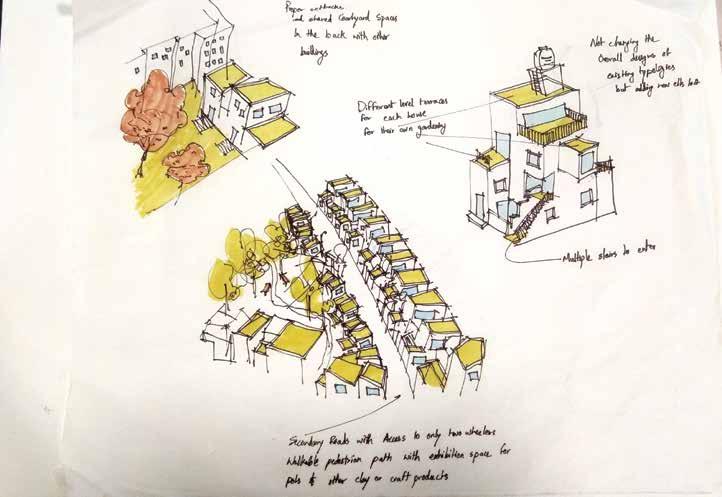 Proper setbacks
and shared Courtyard Spaces
In the back with other
buildings
Not changing the
Overall designs of
existing typologies
but adding new
Different level terraces
for each house
for their own gardening
Multiple stairs to enter
Secondary Roads with Access to only two wheelers
Walkable pedestrian path with exhibition space for
pots & other clay or craft products